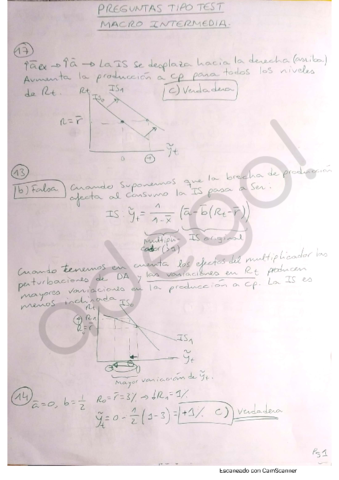 PREGUNTAS TIPO TEST
MACRO INTERMEDIA.
17
↑āce → ↑ā → La IS se desplaza hacia la derecha (arriba)
Aumenta la producción a cp para todos los niveles
de Rt.
c) Verdadera
Rt
IS1
R=r̄
0
ỹt
13
b) Falsa
Cuando suponemos que la brecha de producción
afecta al consumo la IS pasa a ser.
IS: ỹt = 1/(1-x̄) (ā - b̄(Rt - r̄))
IS original
Cuando tenemos en cuenta los efectos del multiplicador las
perturbaciones de DA y las variaciones en Rt producen
mayores variaciones en la producción a cp. La IS es
menos inclinada.
Rt
IS0
IS1
ỹt
mayor variación de ỹt.
14
ā=0, b̄=1/2 R0=r̄=3% → ↓R1=1%
ỹt = 0 - 1/2 (1-3) = +1% c) Verdadera
adego!
Escaneado con CamScanner